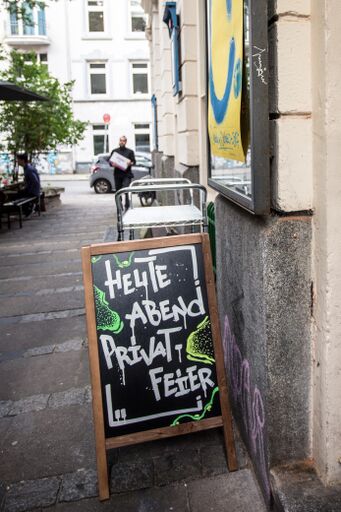 HEUTE
ABEND
PRIVAT
FEIER